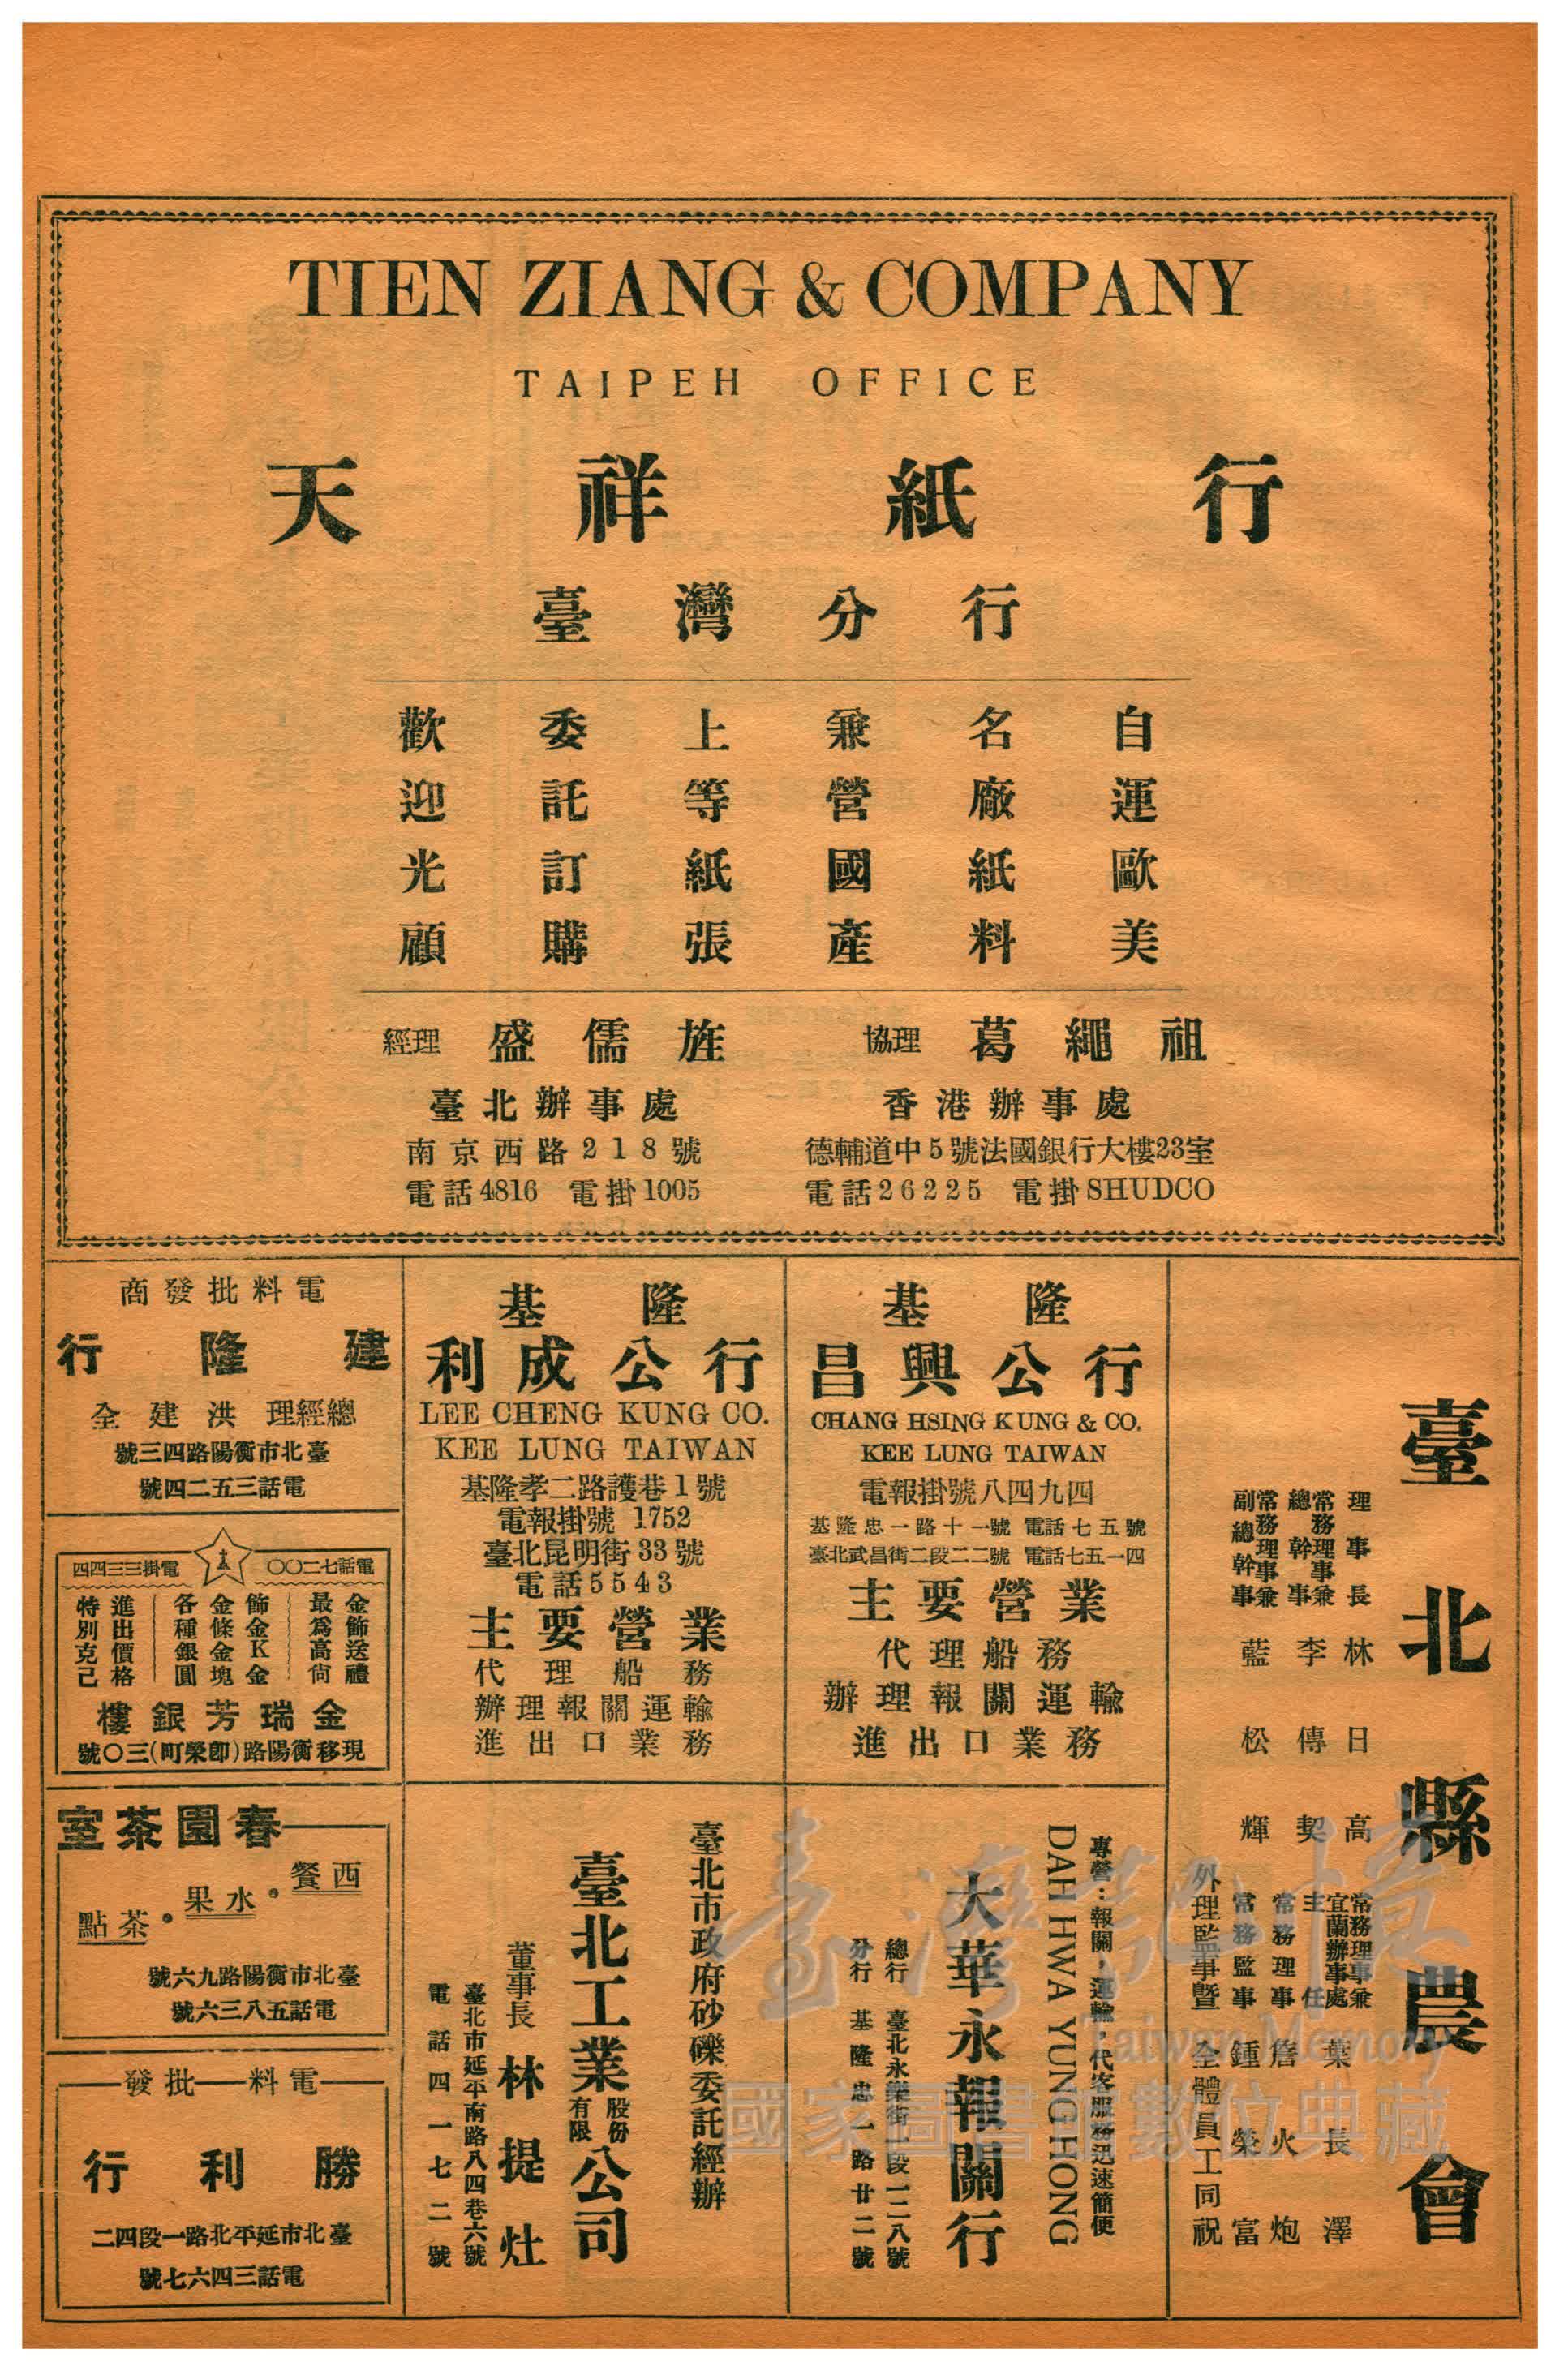 TIEN ZIANG & COMPANY
TAIPEH OFFICE
天祥紙行
臺灣分行
自運歐美
名廠紙料
兼營國產
上等紙張
委託訂購
歡迎光顧
經理 盛儒旌
臺北辦事處
南京西路218號
電話4816 電掛1005
協理 葛繩祖
香港辦事處
德輔道中5號法國銀行大樓23室
電話26225 電掛SHUDCO
臺北縣農會
理事長 林日高
常務理事兼總幹事 李傳契
常務理事兼副總幹事 藍松輝
常務理事兼宜蘭辦事處主任 葉長澤
常務理事 詹火炮
常務監事 鍾榮富
外理監事暨全體員工同祝
基隆
昌興公行
CHANG HSING KUNG & CO.
KEE LUNG TAIWAN
電報掛號八四九四
基隆忠一路十一號 電話七五號
臺北武昌街二段二二號 電話七五一四
主要營業
代理船務
辦理報關運輸
進出口業務
基隆
利成公行
LEE CHENG KUNG CO.
KEE LUNG TAIWAN
基隆孝二路護巷1號
電報掛號 1752
臺北昆明街33號
電話5543
主要營業
代理船務
辦理報關運輸
進出口業務
電料批發商
建隆行
總經理 洪建全
臺北市衡陽路四三號
電話三五二四號
電話七二〇〇
電掛三三四四
金飾送禮
最為高尚
飾金K金
金條金塊
各種銀圓
進出價格
特別克己
金瑞芳銀樓
現移衡陽路(即榮町)三〇號
春園茶室
西餐・水果・茶點
臺北市衡陽路九六號
電話五八三六號
電料—批發
勝利行
臺北市延平北路一段四二
電話三四六七號
專營：報關・運輸・代客服務迅速簡便
DAH HWA YUNG HONG
大華永報關行
總行 臺北永樂街一段一二八號
分行 基隆忠一路廿二號
臺北市政府砂礫委託經辦
臺北工業股份有限公司
董事長 林提灶
臺北市延平南路八四巷六號
電話四一七二號
臺灣記憶
Taiwan Memory
國家圖書館數位典藏